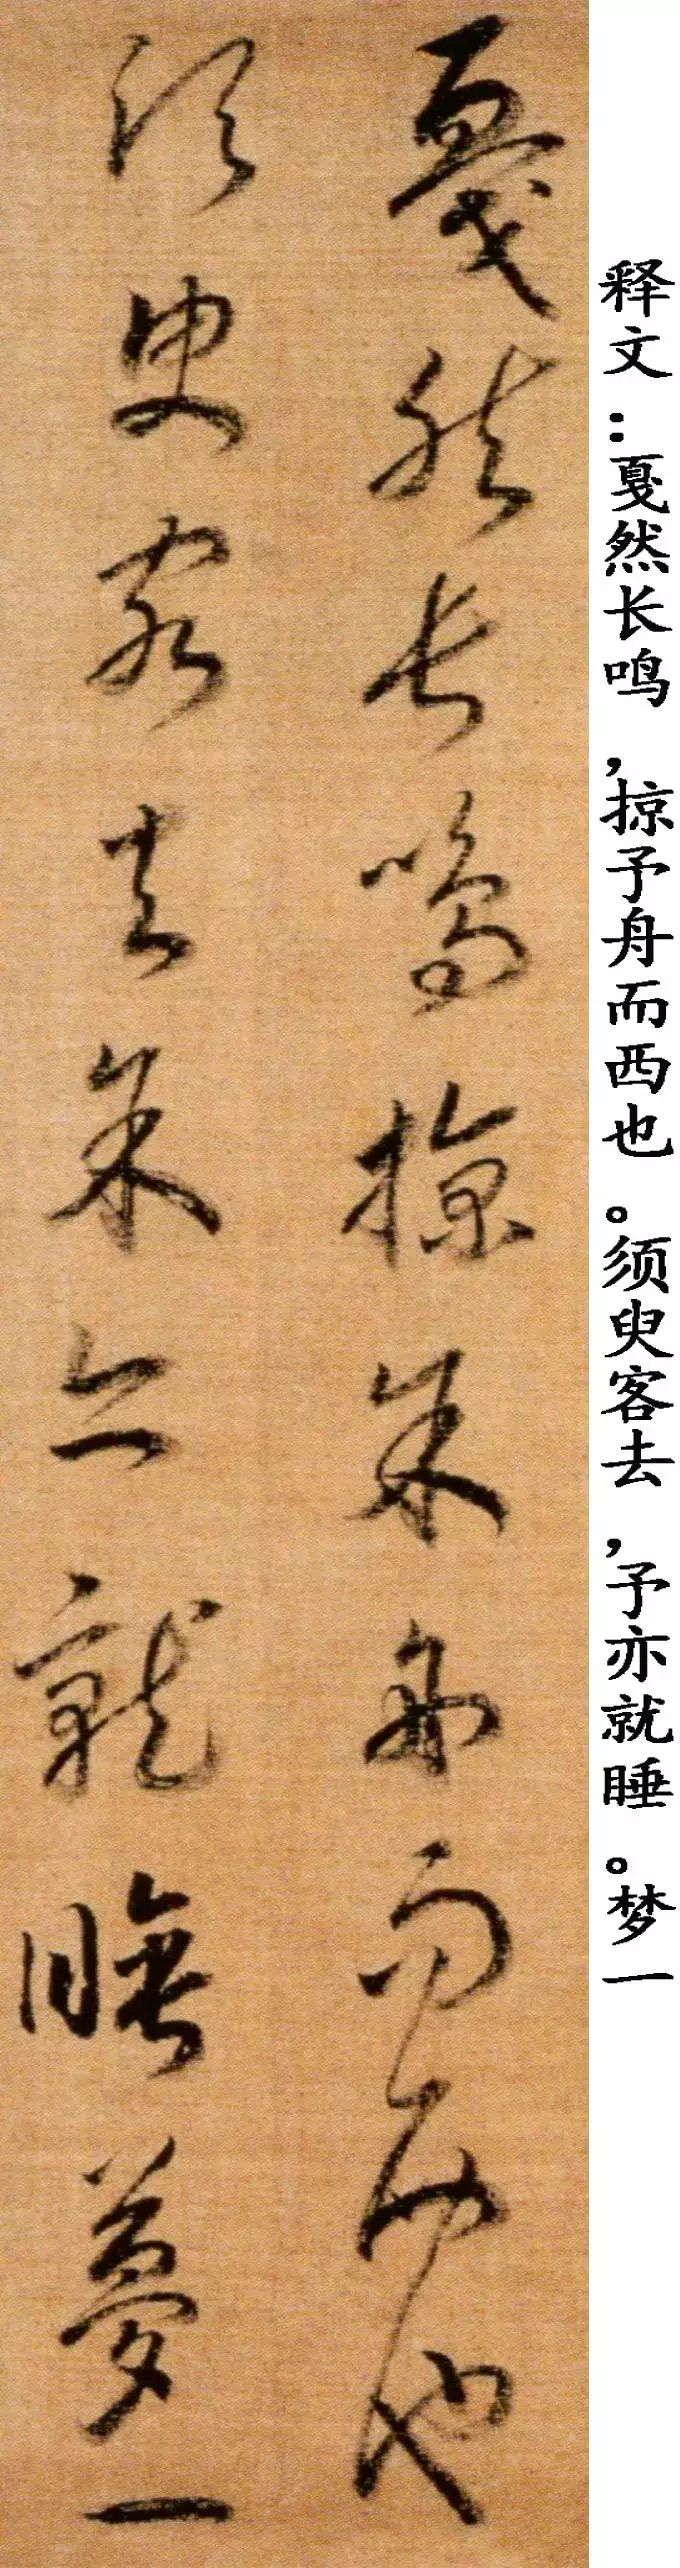 释文：戛然长鸣，掠予舟而西也。须臾客去，予亦就睡。梦一
戛然長鳴掠余舟而西也
須臾客去余亦就睡夢一